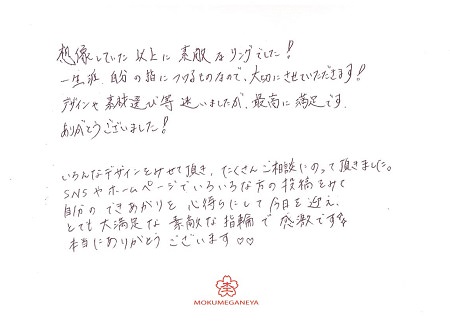 想像していた以上に素敵なリングでした！
一生涯、自分の指につけるものなので、大切にさせていただきます！
デザインや素材選び等迷いましたが、最高に満足です。
ありがとうございました！
いろんなデザインをみせて頂き、たくさんご相談にのって頂きました。
SNSやホームページでいろいろな方の投稿をみて
自分のできあがりを心待ちにして今日を迎え、
とても大満足な素敵な指輪で感激です
本当にありがとうございます♡♡
MOKUMEGANEYA